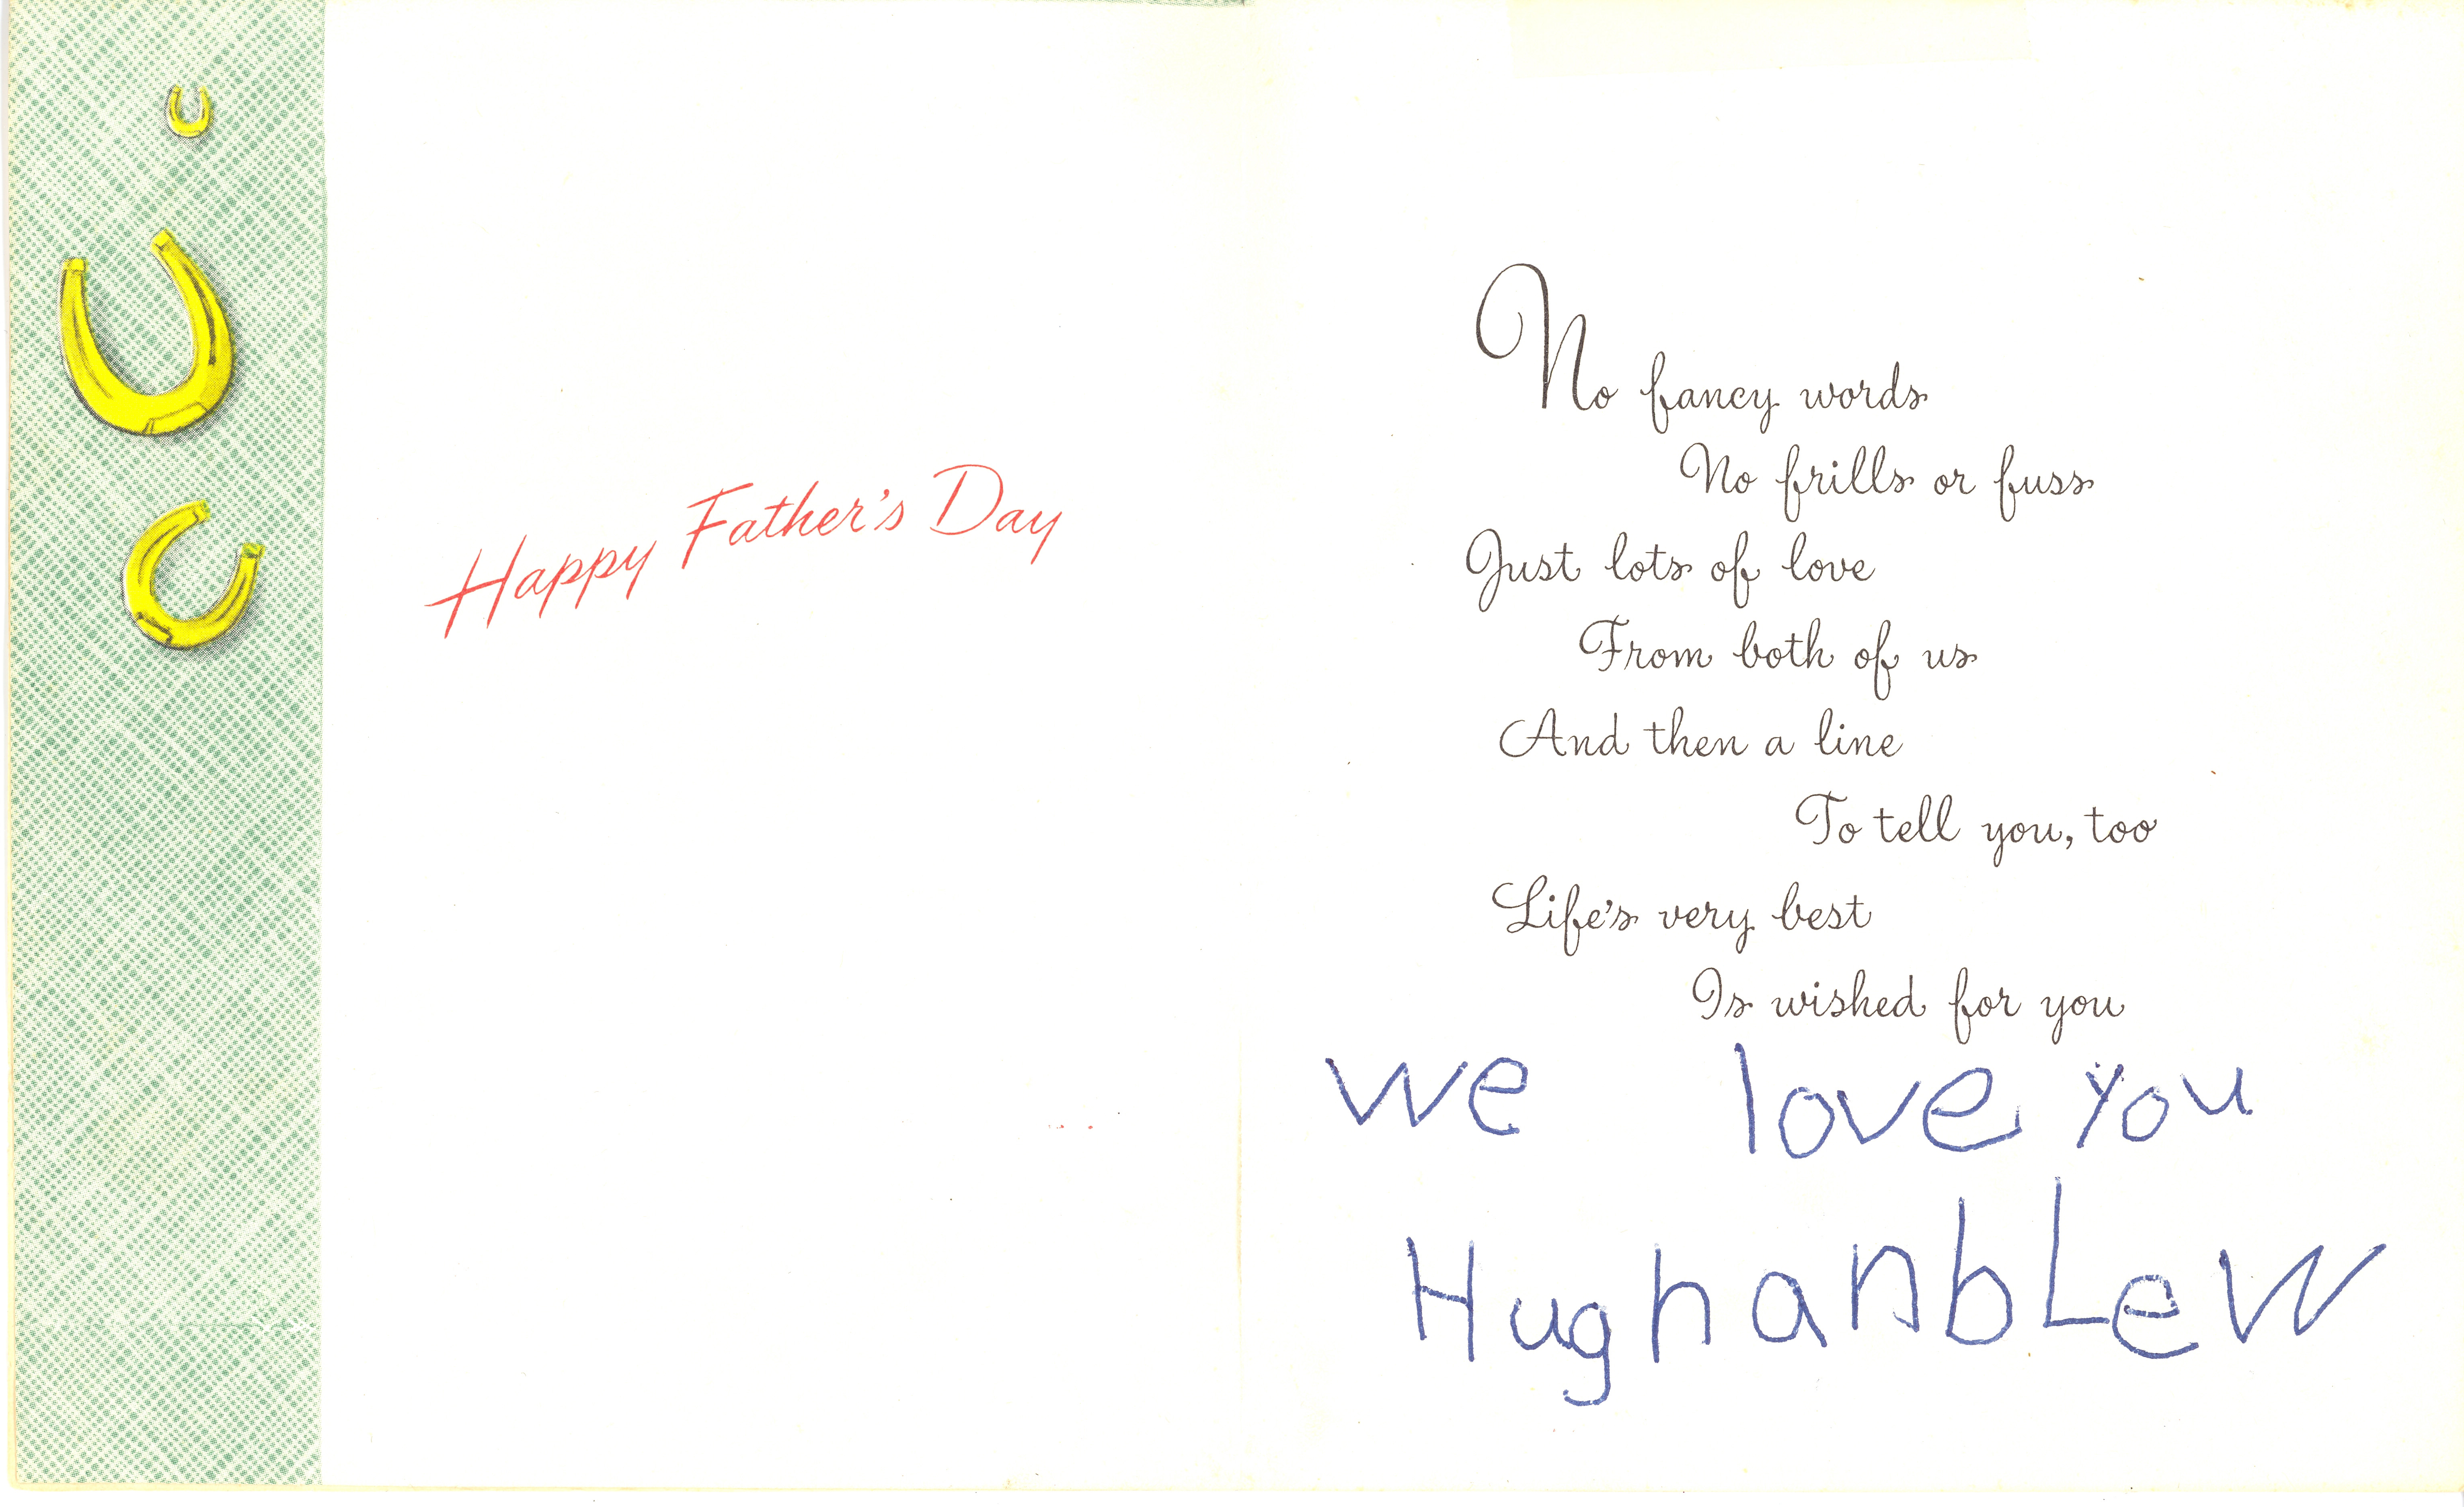 Happy Father's Day
No fancy words
No frills or fuss
Just lots of love
From both of us
And then a line
To tell you, too
Life's very best
Is wished for you
we love you
HughanbLew